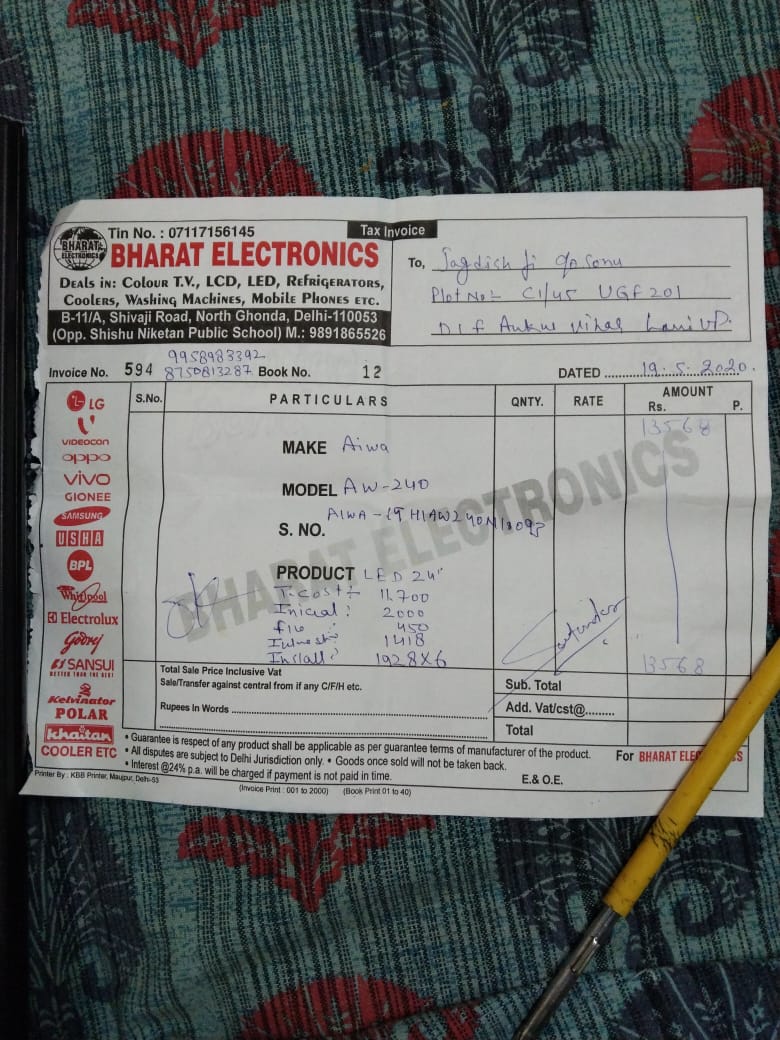 Tin No. : 07117156145
Tax Invoice
BHARAT ELECTRONICS
BHARAT ELECTRONICS
Deals in: Colour T.V., LCD, LED, Refrigerators,
Coolers, Washing Machines, Mobile Phones etc.
B-11/A, Shivaji Road, North Ghonda, Delhi-110053
(Opp. Shishu Niketan Public School) M.: 9891865526
To, Jagdish Ji
Plot No:- C1/45 UGF 201
DLF Ankur Vihar Loni UP.
9958983392
Invoice No. 594 8750813287 Book No. 12 DATED 19.5.2020.
S.No. PARTICULARS QNTY. RATE AMOUNT
Rs. P.
13568
LG
VIDEOCON
oppo
vivo
GIONEE
SAMSUNG
USHA
BPL
Whirlpool
Electrolux
Godrej
SANSUI
BETTER THAN THE BEST
Kelvinator
POLAR
khaitan
COOLER ETC
MAKE Aiwa
MODEL AW-240
S. NO.
BHARAT ELECTRONICS
PRODUCT LED 24"
T.Cost:- 11,700
Inicial: 2000
file : 450
1418
Install: 1928X6
13568
Total Sale Price Inclusive Vat
Sale/Transfer against central from if any C/F/H etc.
Rupees in Words
Sub. Total
Add. Vat/cst@
Total
• Guarantee is respect of any product shall be applicable as per guarantee terms of manufacturer of the product.
• All disputes are subject to Delhi Jurisdiction only. • Goods once sold will not be taken back.
• Interest @24% p.a. will be charged if payment is not paid in time.
For BHARAT ELE
E.& O.E.
Printer By : KBB Printer, Maujpur, Delhi-53
(Invoice Print : 001 to 2000) (Book Print 01 to 40)